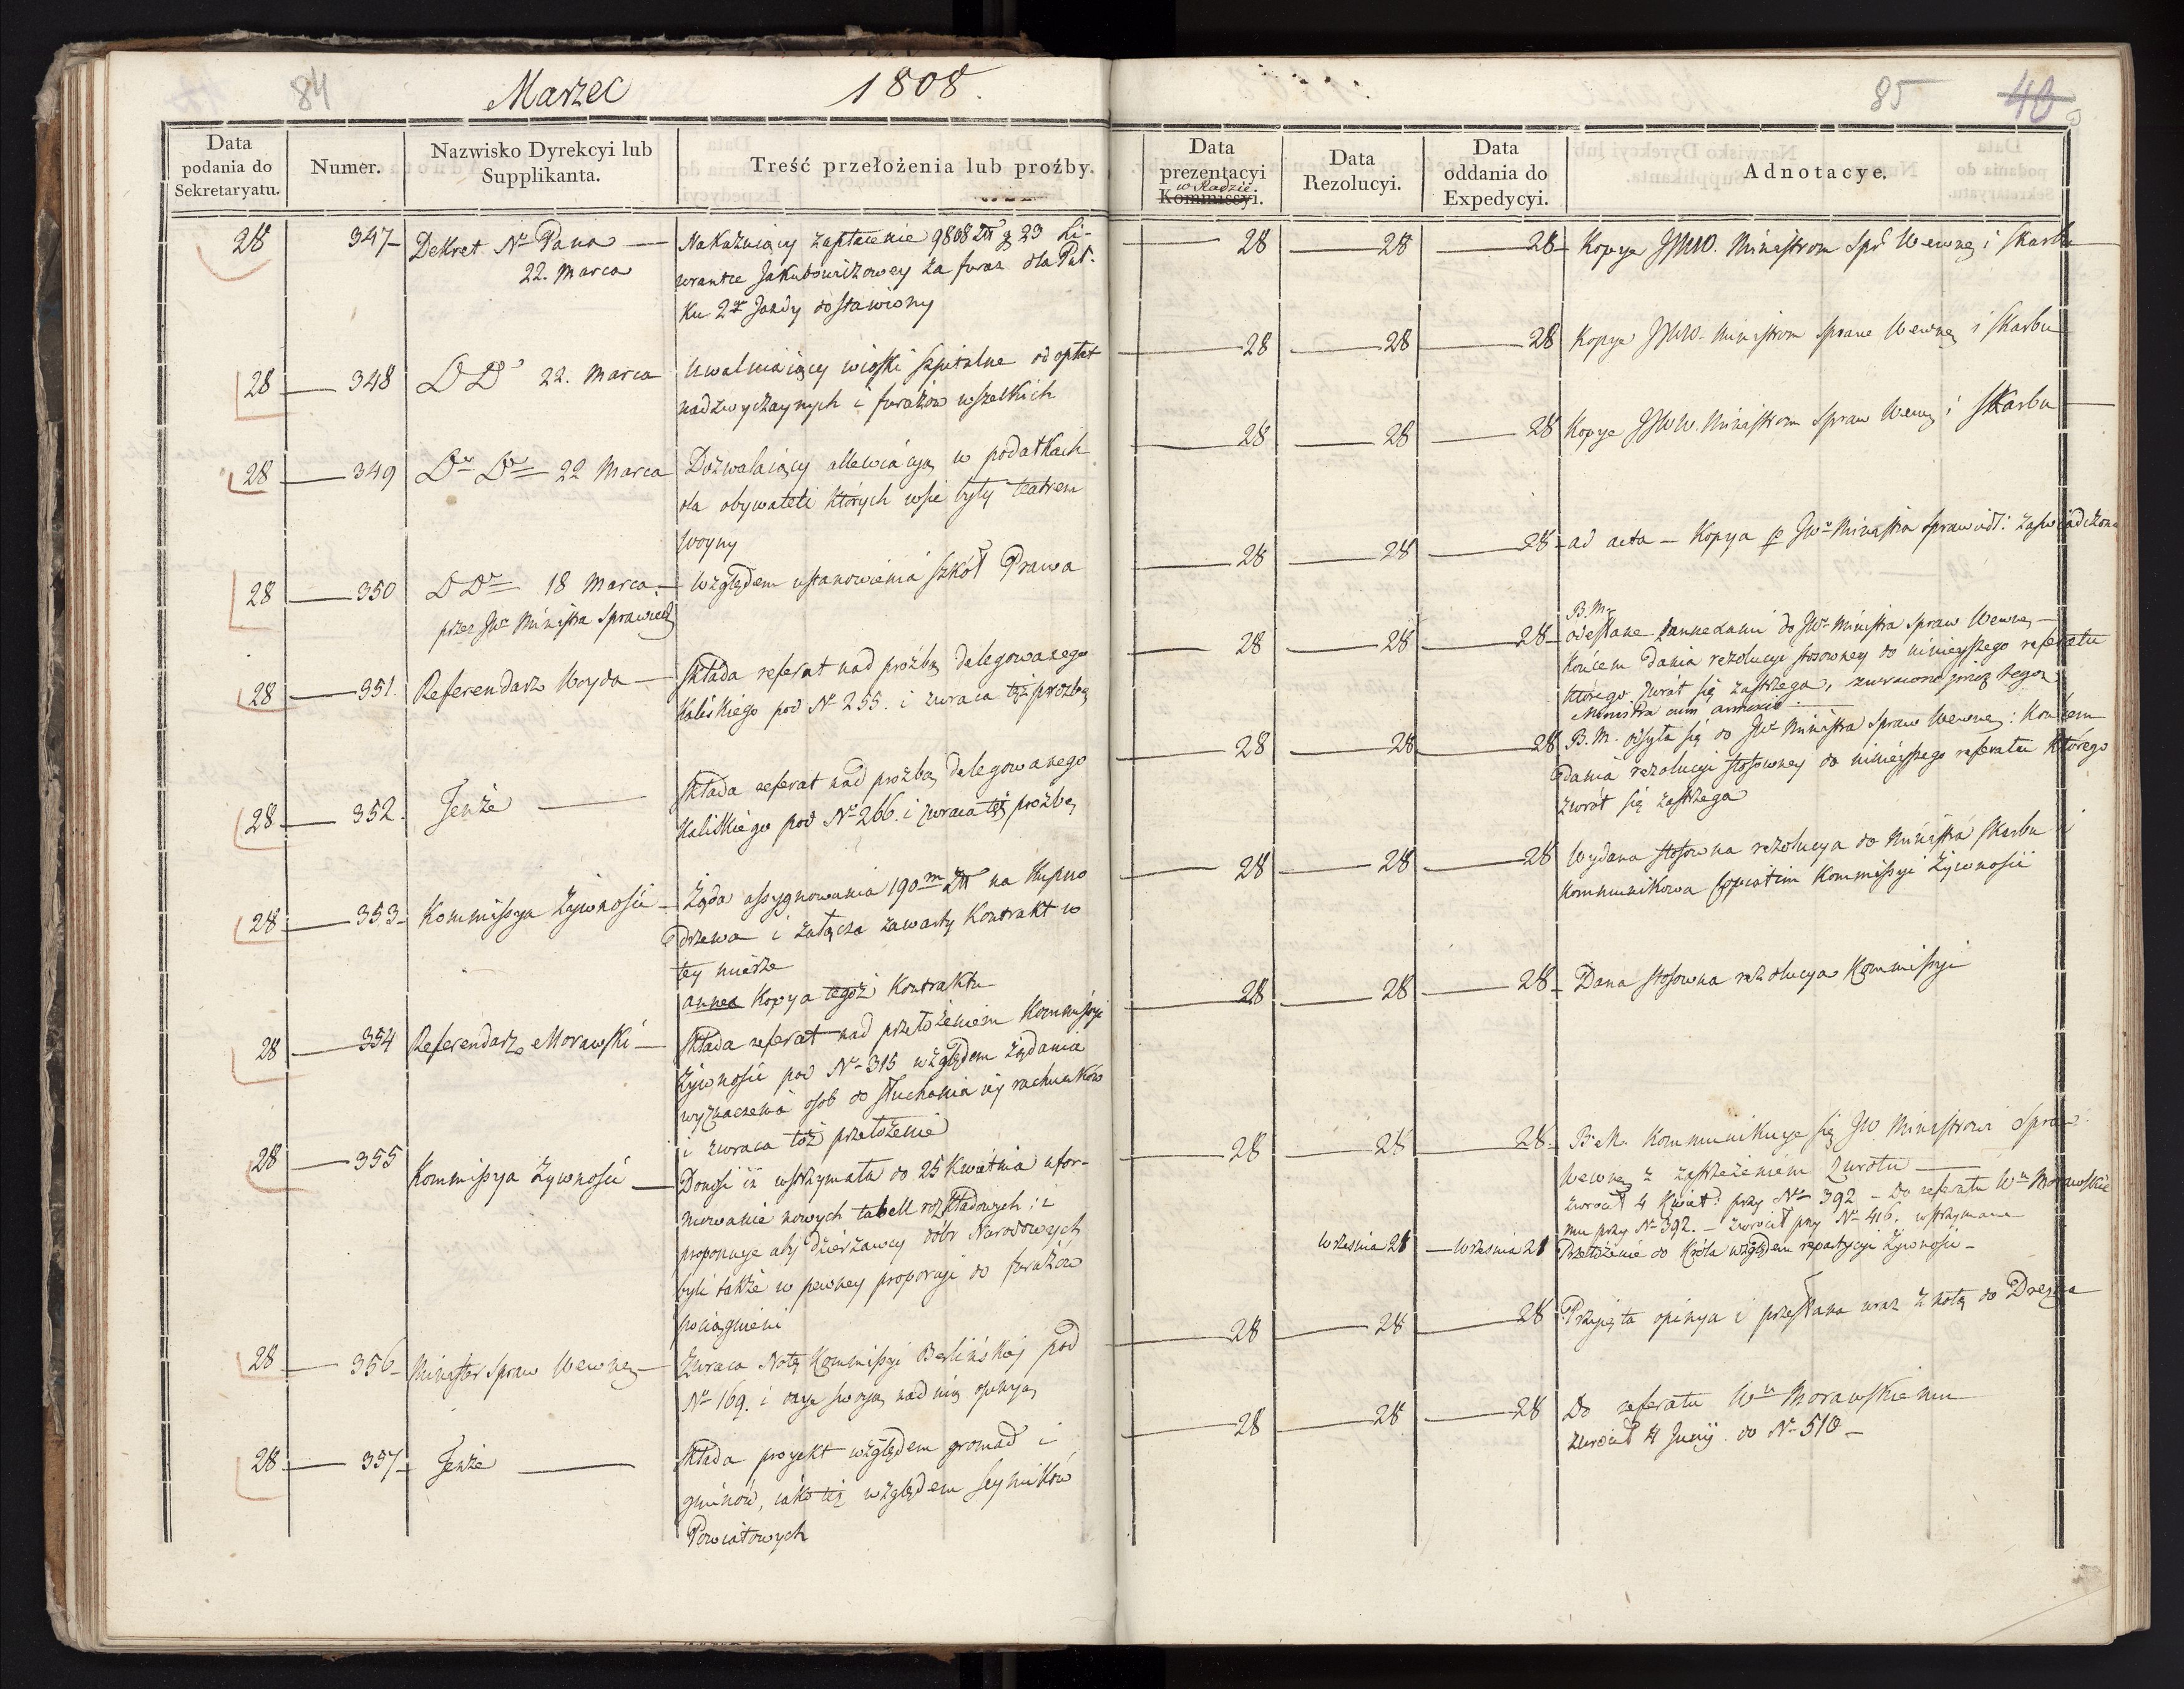 84
Marzec 1808.
85
40
Data podania do Sekretaryatu.
Numer.
Nazwisko Dyrekcyi lub Supplikanta.
Treść przełożenia lub proźby.
Data prezentacyi w Radzie. Kommissyi.
Data Rezolucyi.
Data oddania do Expedycyi.
Adnotacye.
28 347 Dekret Nº Pana
22. Marca
Nakazuiący zapłacenie 9808 23 Li-
wrantce Jakubowiczowey za furaż dla Puł-
ku 2º Jazdy dostawiony
28 28 28 Kopye JJWW. Ministrom Spr Wewnę i Skarbu
28 348 DD 22. Marca
Uwalniaiący wioski szpitalne od opłat
nadzwyczaynych i furażów wszelkich
28 28 28 Kopye JJWW. Ministrom Spraw Wewnę i Skarbu
28 349 Dº Dº 22 Marca
Dozwalaiący allewiacyą w podatkach
dla obywateli których wsie były teatrem
woyny
28 28 28 Kopye JJWW. Ministrom Spraw Wewnę i Skarbu
28 350 D Dº 18 Marca
przez JWº Ministra Sprawiedl
Względem ustanowienia szkół Prawa
28 28 28 ad acta – Kopya JWº Ministra Sprawiedl: zaświadczona
28 351. Referendarz Woyda
Składa referat nad proźbą delegowanego
Kaliskiego pod Nº 255. i zwraca też proźbę
28 28 28 B.M.
odesłane do JWº Ministra Spraw Wewnę
końcem dania rezolucyi stosowney do ninieyszego referatu
którego zwrót się zastrzega, zwrócono przez tegoż
Ministra cum annexis
28 352. Tenże
Składa referat nad proźbą delegowanego
Kaliskiego pod Nº 266. i zwraca też proźbę
28 28 28 B.M. odsyła się do JWº Ministra Spraw Wewnę: końcem
dania rezolucyi stosowney do ninieyszego referatu którego
zwrót się zastrzega
28 353 Kommissya Żywności
Żąda assygnowania 190m na kupno
drzewa i załącza zawarty kontrakt w
tey mierze
annex Kopya tegoż kontraktu
28 28 28 Wydana stosowna rezolucya do Ministra Skarbu i
kommunikowa copiatim Kommissyi Żywności
28 354 Referendarz Morawski
Składa referat nad przełożeniem Kommissyi
Żywności pod Nº 315 względem żądania
wyznaczenia osob do słuchania iey rachunków
i zwraca toż przełożenie
28 28 28 Dana stosowna rezolucya Kommissyi
28 355 Kommissya Żywności
Donosi iż wstrzymała do 25 Kwietnia ufor-
mowanie nowych tabell rozkładowych: i
proponuie aby dzierżawcy dóbr Narodowych
byli także w pewney proporcyi do furażów
pociągnieni
28 28 28 B.M. Kommunikuye się JW Ministrowi Spraw:
Wewnę z zastrzeżeniem zwrotu
zwrócił 4 Kwiet: przy Nº 392 – Do referatu Wº Morawskie
mu przy Nº 392. – zwrócił przy Nº 416. wstrzymane
Września 21 Września 21 Przełożenie do Króla względem repartycyi Żywności –
28 356 Minister Spraw Wewnę
Zwraca Notę Kommissyi Berlińskiej pod
Nº 169. i daye swoyą nad nią opinyą
28 28 28 Przyięta opinya i przesłana wraz z notą do Drezna
28 357 Tenże
Składa proyekt względem gromad i
gminów, iako też względem Seymików
Powiatowych
28 28 28 Do referatu Wº Morawskiemu
zwrócił 4 Junij do Nº 510 –